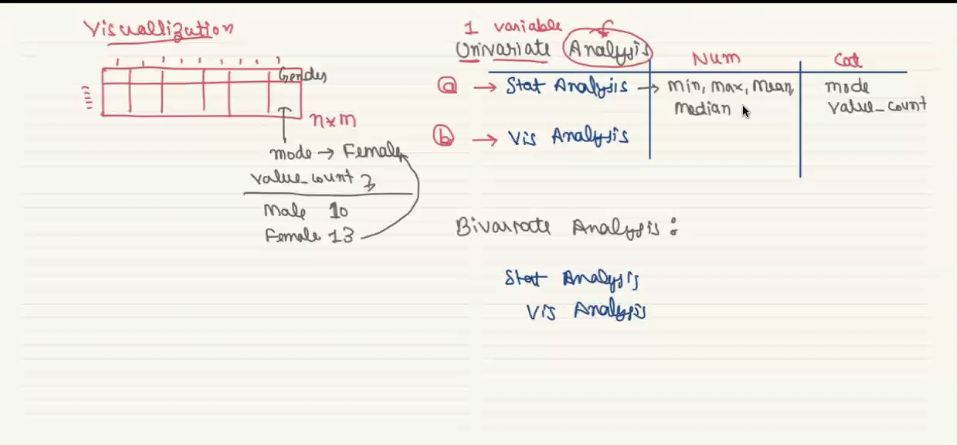 Visuallization
Gender
n×m
mode → Female
value_count
Male 10
Female 13
1 variable
Univariate Analysis
Num
Cat
ⓐ → Stat Analysis → min, max, mean,
median
mode
value_count
ⓑ → Vis Analysis
Bivariate Analysis :
Stat Analysis
Vis Analysis